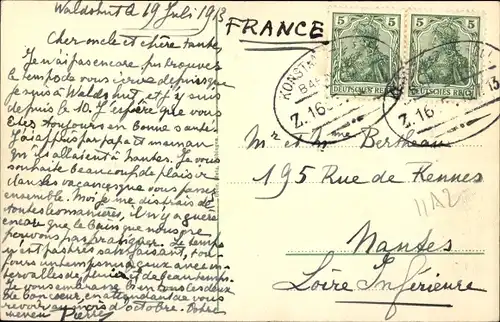 Waldshut le 19 Juli 1913
Cher oncle et chère tante,
Je n'ai pas encore pu trouver
le temps de vous écrire depuis que
je suis à Waldshut et j'y suis
depuis le 10. J'espère que vous
êtes toujours en bonne santé
J'ai appris par papa et maman
qu'ils allaient à Nantes. Je vous
souhaite beaucoup de plaisir
dans les vacances que vous passez
ensemble. Moi je me distrais de
toutes les manières, il n'y a guère
encore que le bain que nous ne
pouvons pas arranger. Le temps
n'est pas très satisfaisant, tou-
jours un temps nuageux avec in-
tervalles de pluie et de beau temps
Je vous embrasse bien tous les deux
de bon coeur, en attendant de vous
revoir au mois d'octobre. Votre
neveu Pierre
FRANCE
5 5 5 5
DEUTSCHES REICH DEUTSCHES REICH
KONSTANZ
Z.16
Z.16 13
Mr et Mme Bertheau
195 Rue de Rennes
Nantes
Loire Inférieure